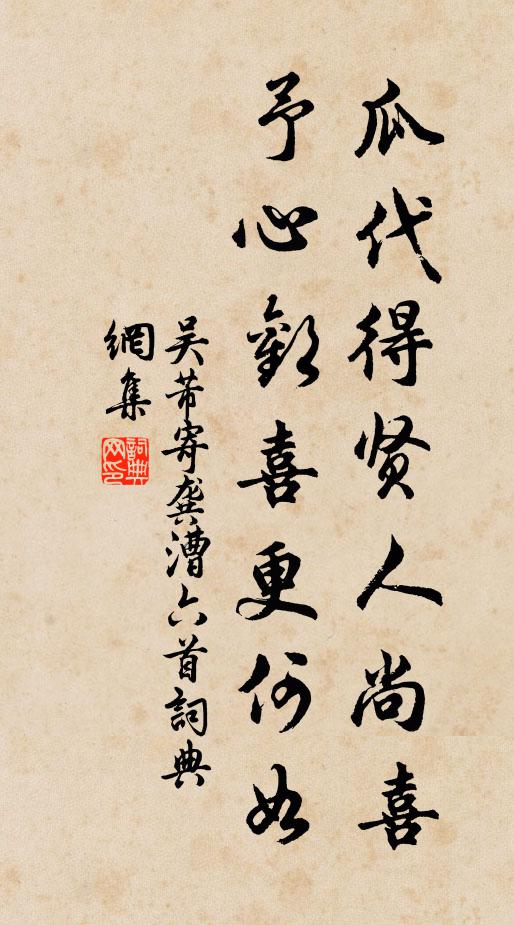 瓜代得贤人尚喜
予心歡喜更何如
吴芾寄龚漕六首詞典
網集
詞典網印